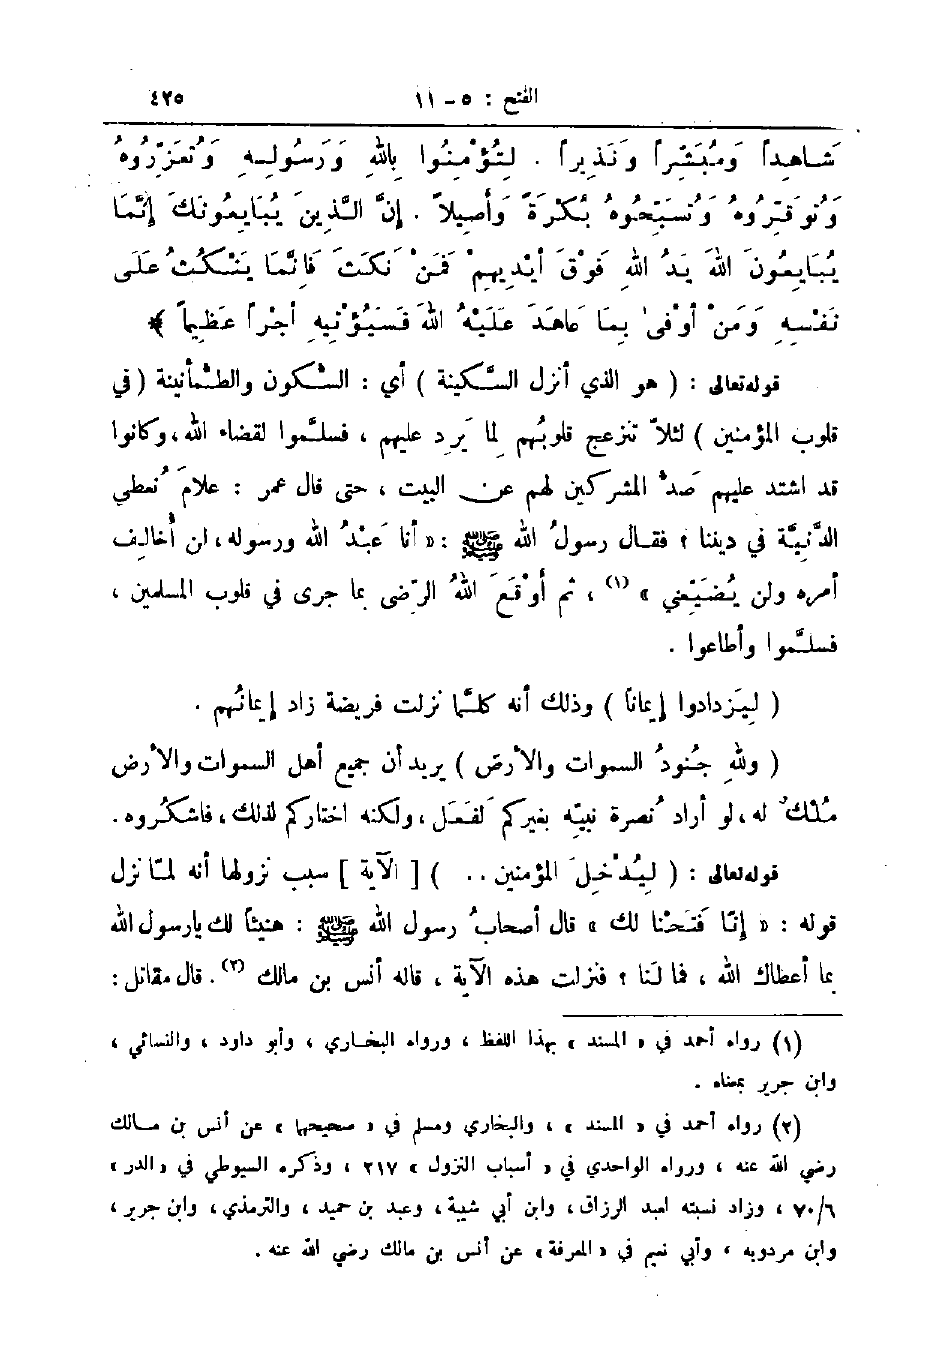 الفتح : ٥ - ١١ ٤٢٥
شَاهِداً وَمُبَشِّراً وَنَذِيراً . لِتُؤْمِنُوا بِاللهِ وَرَسُولِهِ وَتُعَزِّرُوهُ
وَتُوَقِّرُوهُ وَتُسَبِّحُوهُ بُكْرَةً وَأَصِيلاً . إِنَّ الَّذِينَ يُبَايِعُونَكَ إِنَّمَا
يُبَايِعُونَ اللهَ يَدُ اللهِ فَوْقَ أَيْدِيهِمْ فَمَنْ نَكَثَ فَإِنَّمَا يَنْكُثُ عَلَى
نَفْسِهِ وَمَنْ أَوْفَى بِمَا عَاهَدَ عَلَيْهُ اللهَ فَسَيُؤْتِيهِ أَجْراً عَظِيماً ﴾
قوله تعالى : ( هو الذي أنزل السَّكينة ) أي : السُّكون والطُّمأنينة ( في
قلوب المؤمنين ) لئلاَّ تنزعج قلوبُهم لِما يَرِد عليهم ، فسلَّموا لقضاء الله ، وكانوا
قد اشتد عليهم صَدُّ المشركين لهم عن البيت ، حتى قال عمر : علامَ نُعطي
الدَّنِيَّة في ديننا ؟ فقال رسولُ الله ﷺ : « أنا عَبْدُ الله ورسوله ، لن أُخالِف
أمره ولن يُضَيِّعني » (١) ، ثم أَوْقَعَ اللهُ الرِّضى بما جرى في قلوب المسلمين ،
فسلَّموا وأطاعوا .
( لِيَزدادوا إيماناً ) وذلك أنه كلَّما نزلت فريضة زاد إيمانُهم .
( وللهِ جُنودُ السموات والأرض ) يريد أن جميع أهل السموات والأرض
مُلْكٌ له ، لو أراد نُصرة نبيِّه بغيركم لَفَعَل ، ولكنه اختاركم لذلك ، فاشكُروه .
قوله تعالى : ( لِيُدْخِلَ المؤمنين .. ) [ الآية ] سبب نزولها أنه لمّا نزل
قوله : « إنّا فَتَحْنا لك » قال أصحابُ رسول الله ﷺ : هنيئاً لك يارسول الله
بما أعطاك الله ، فما لَنا ؟ فنزلت هذه الآية ، قاله أنس بن مالك (٢) . قال مقاتل :
(١) رواه أحمد في « المسند » بهذا اللفظ ، ورواه البخاري ، وأبو داود ، والنسائي ،
وابن جرير بمعناه .
(٢) رواه أحمد في « المسند » ، والبخاري ومسلم في « صحيحيها » عن أنس بن مالك
رضي الله عنه ، ورواه الواحدي في « أسباب النزول » ٢١٧ ، وذكره السيوطي في « الدر »
٧٠/٦ ، وزاد نسبته لعبد الرزاق ، وابن أبي شيبة ، وعبد بن حميد ، والترمذي ، وابن جرير ،
وابن مردويه ، وأبي نعيم في « المعرفة » عن أنس بن مالك رضي الله عنه .